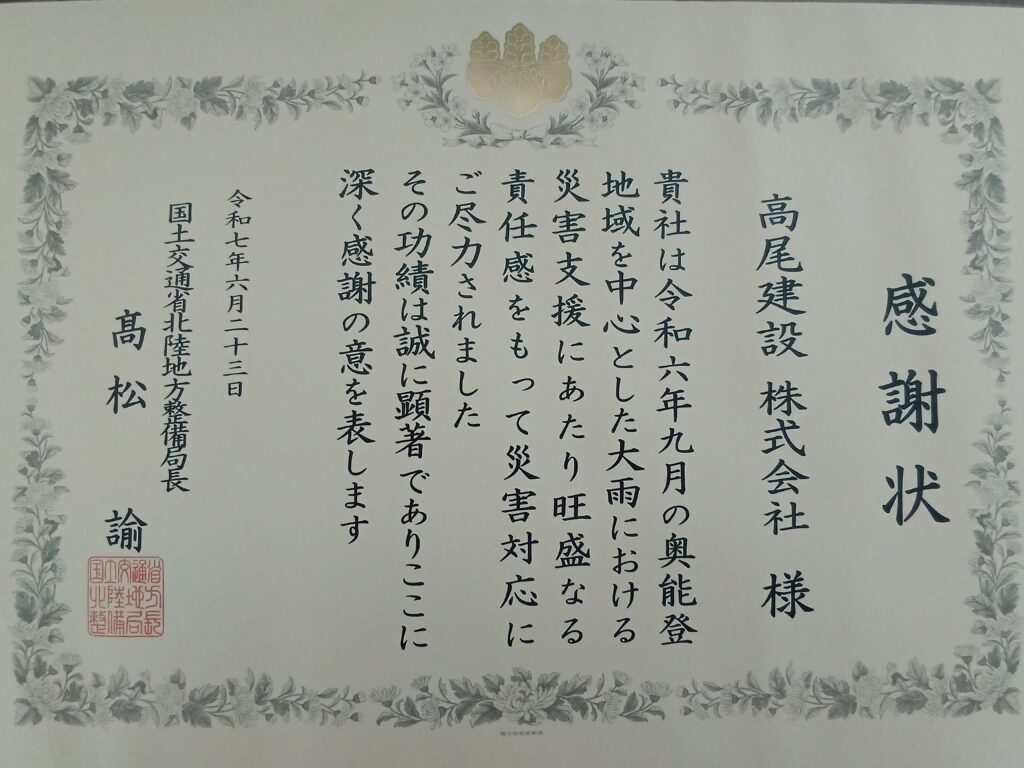 感謝状
高尾建設 株式会社 様
貴社は令和六年九月の奥能登
地域を中心とした大雨における
災害支援にあたり旺盛なる
責任感をもって災害対応に
ご尽力されました
その功績は誠に顕著でありここに
深く感謝の意を表します
令和七年六月二十三日
国土交通省北陸地方整備局長
髙松 諭